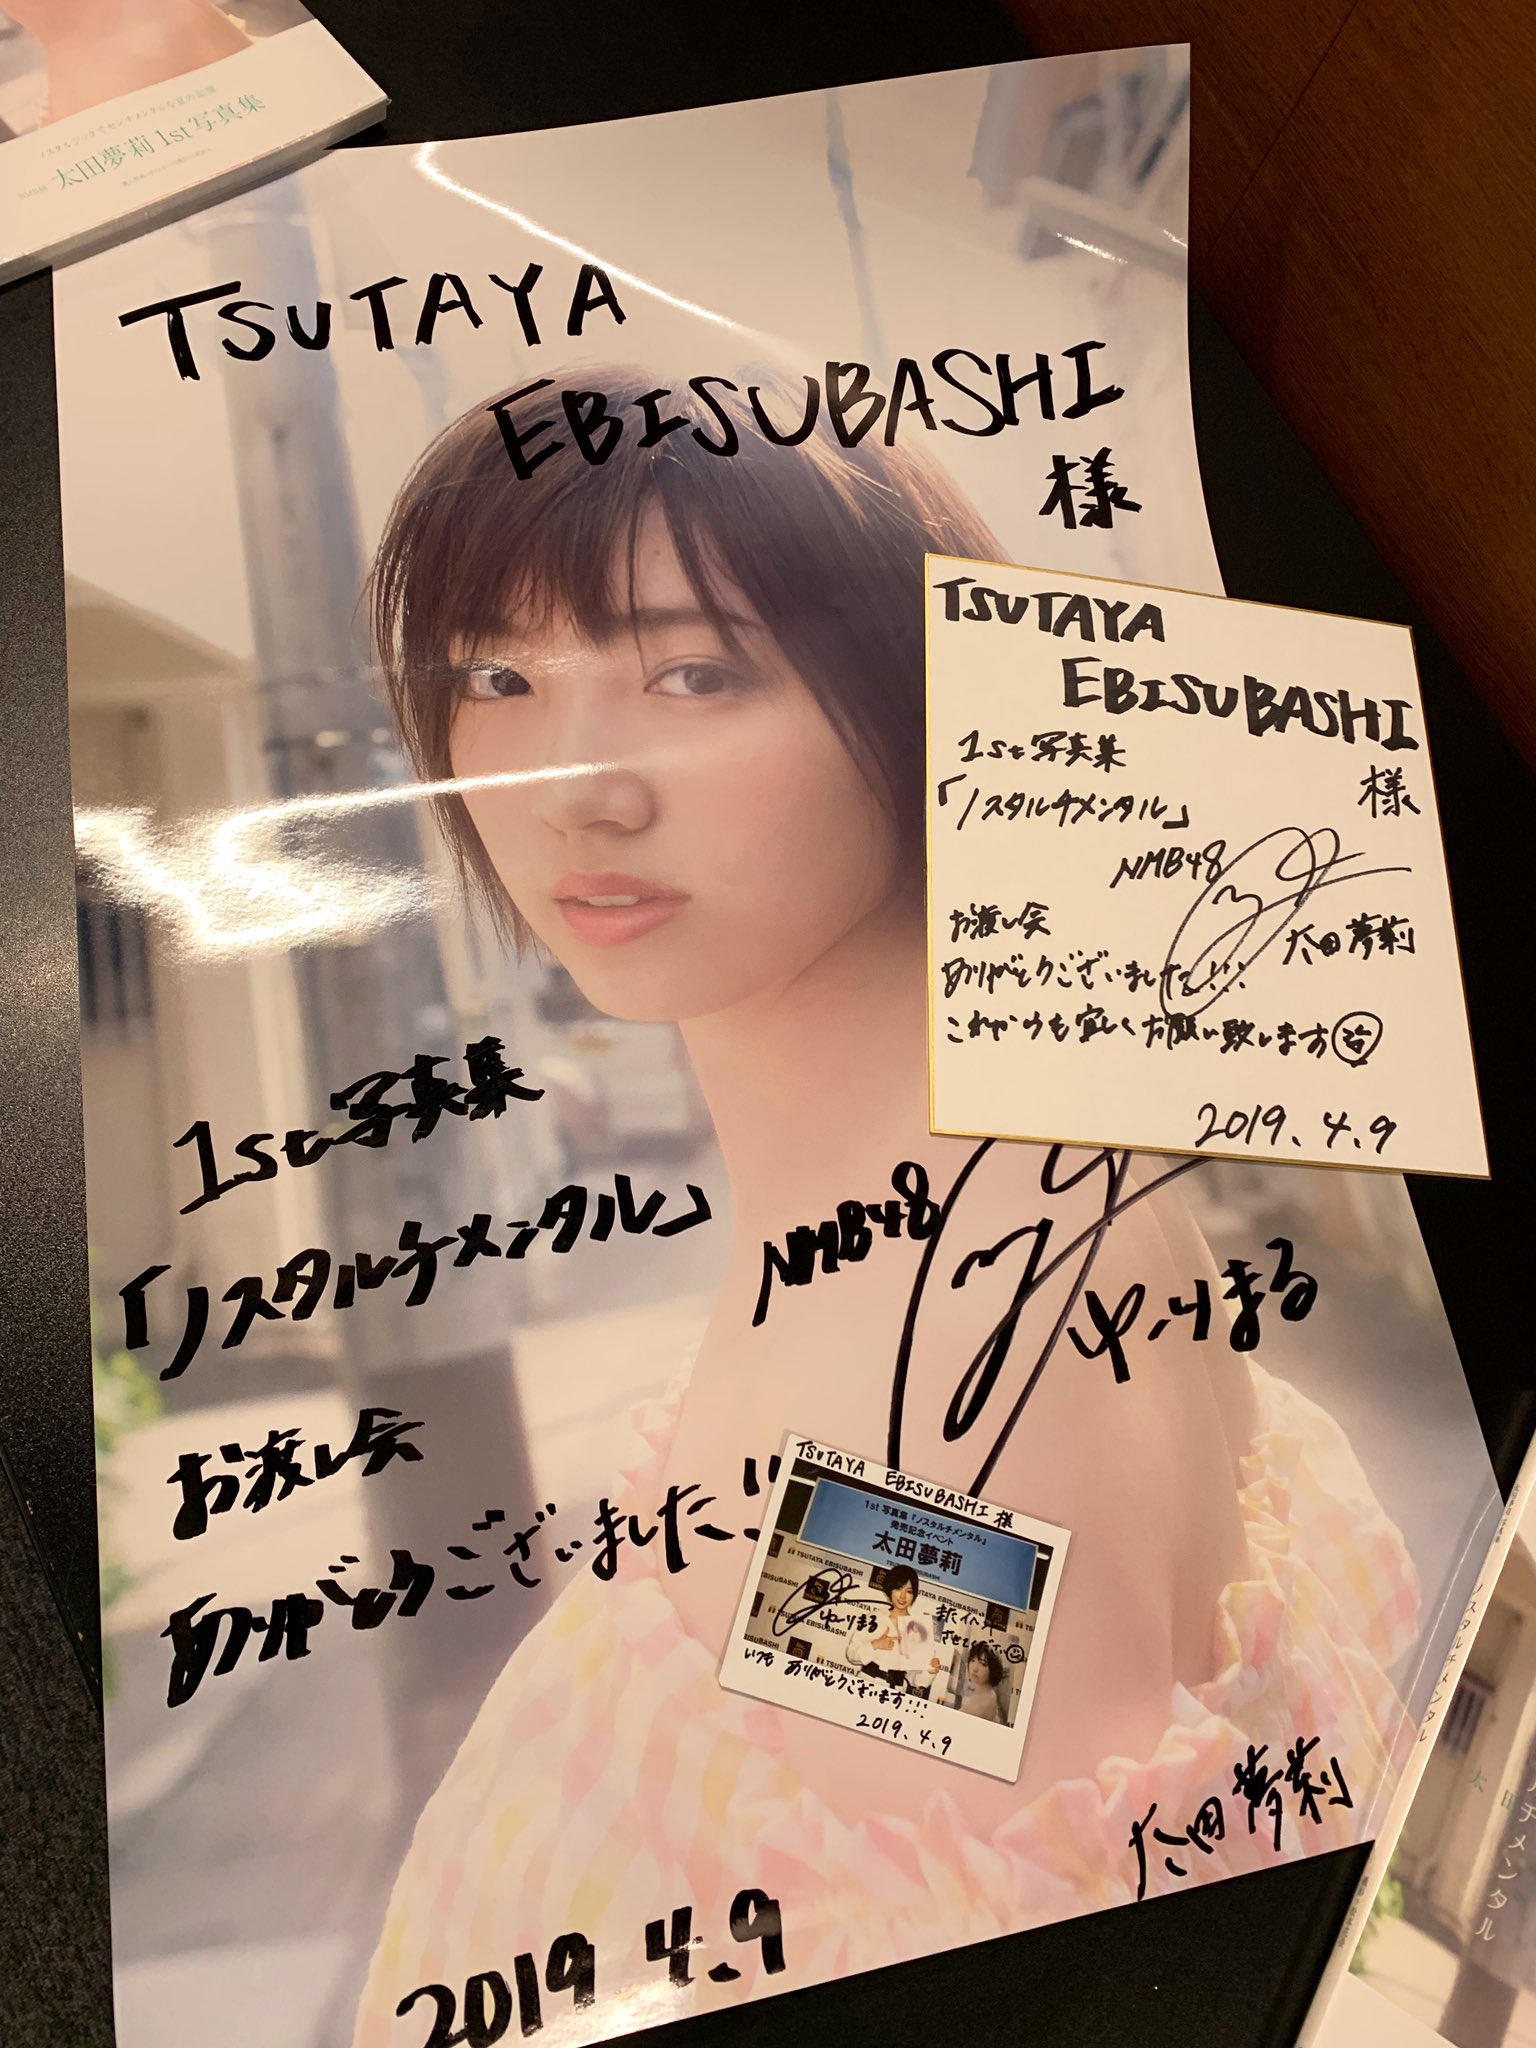 ノスタルジックでセンチメンタルな夏の記憶
NMB48 太田夢莉 1st写真集
TSUTAYA
EBISUBASHI
様
1st写真集
「ノスタルチメンタル」
お渡し会
ありがとうございました!!
NMB48
ゆーりまる
太田夢莉
2019 4.9
TSUTAYA
EBISUBASHI
様
1st写真集
「ノスタルチメンタル」
NMB48
太田夢莉
お渡し会
ありがとうございました!!!
これからも宜しくお願い致します
2019.4.9
TSUTAYA EBISUBASHI 様
1st 写真集『ノスタルチメンタル』
発売記念イベント
太田夢莉
TSUTAYA EBISUBASHI
ゆーりまる
またイベント
させてください
いつも ありがとうございます!!!
2019.4.9
ノスタルチメンタル
太田
ルチメンタル